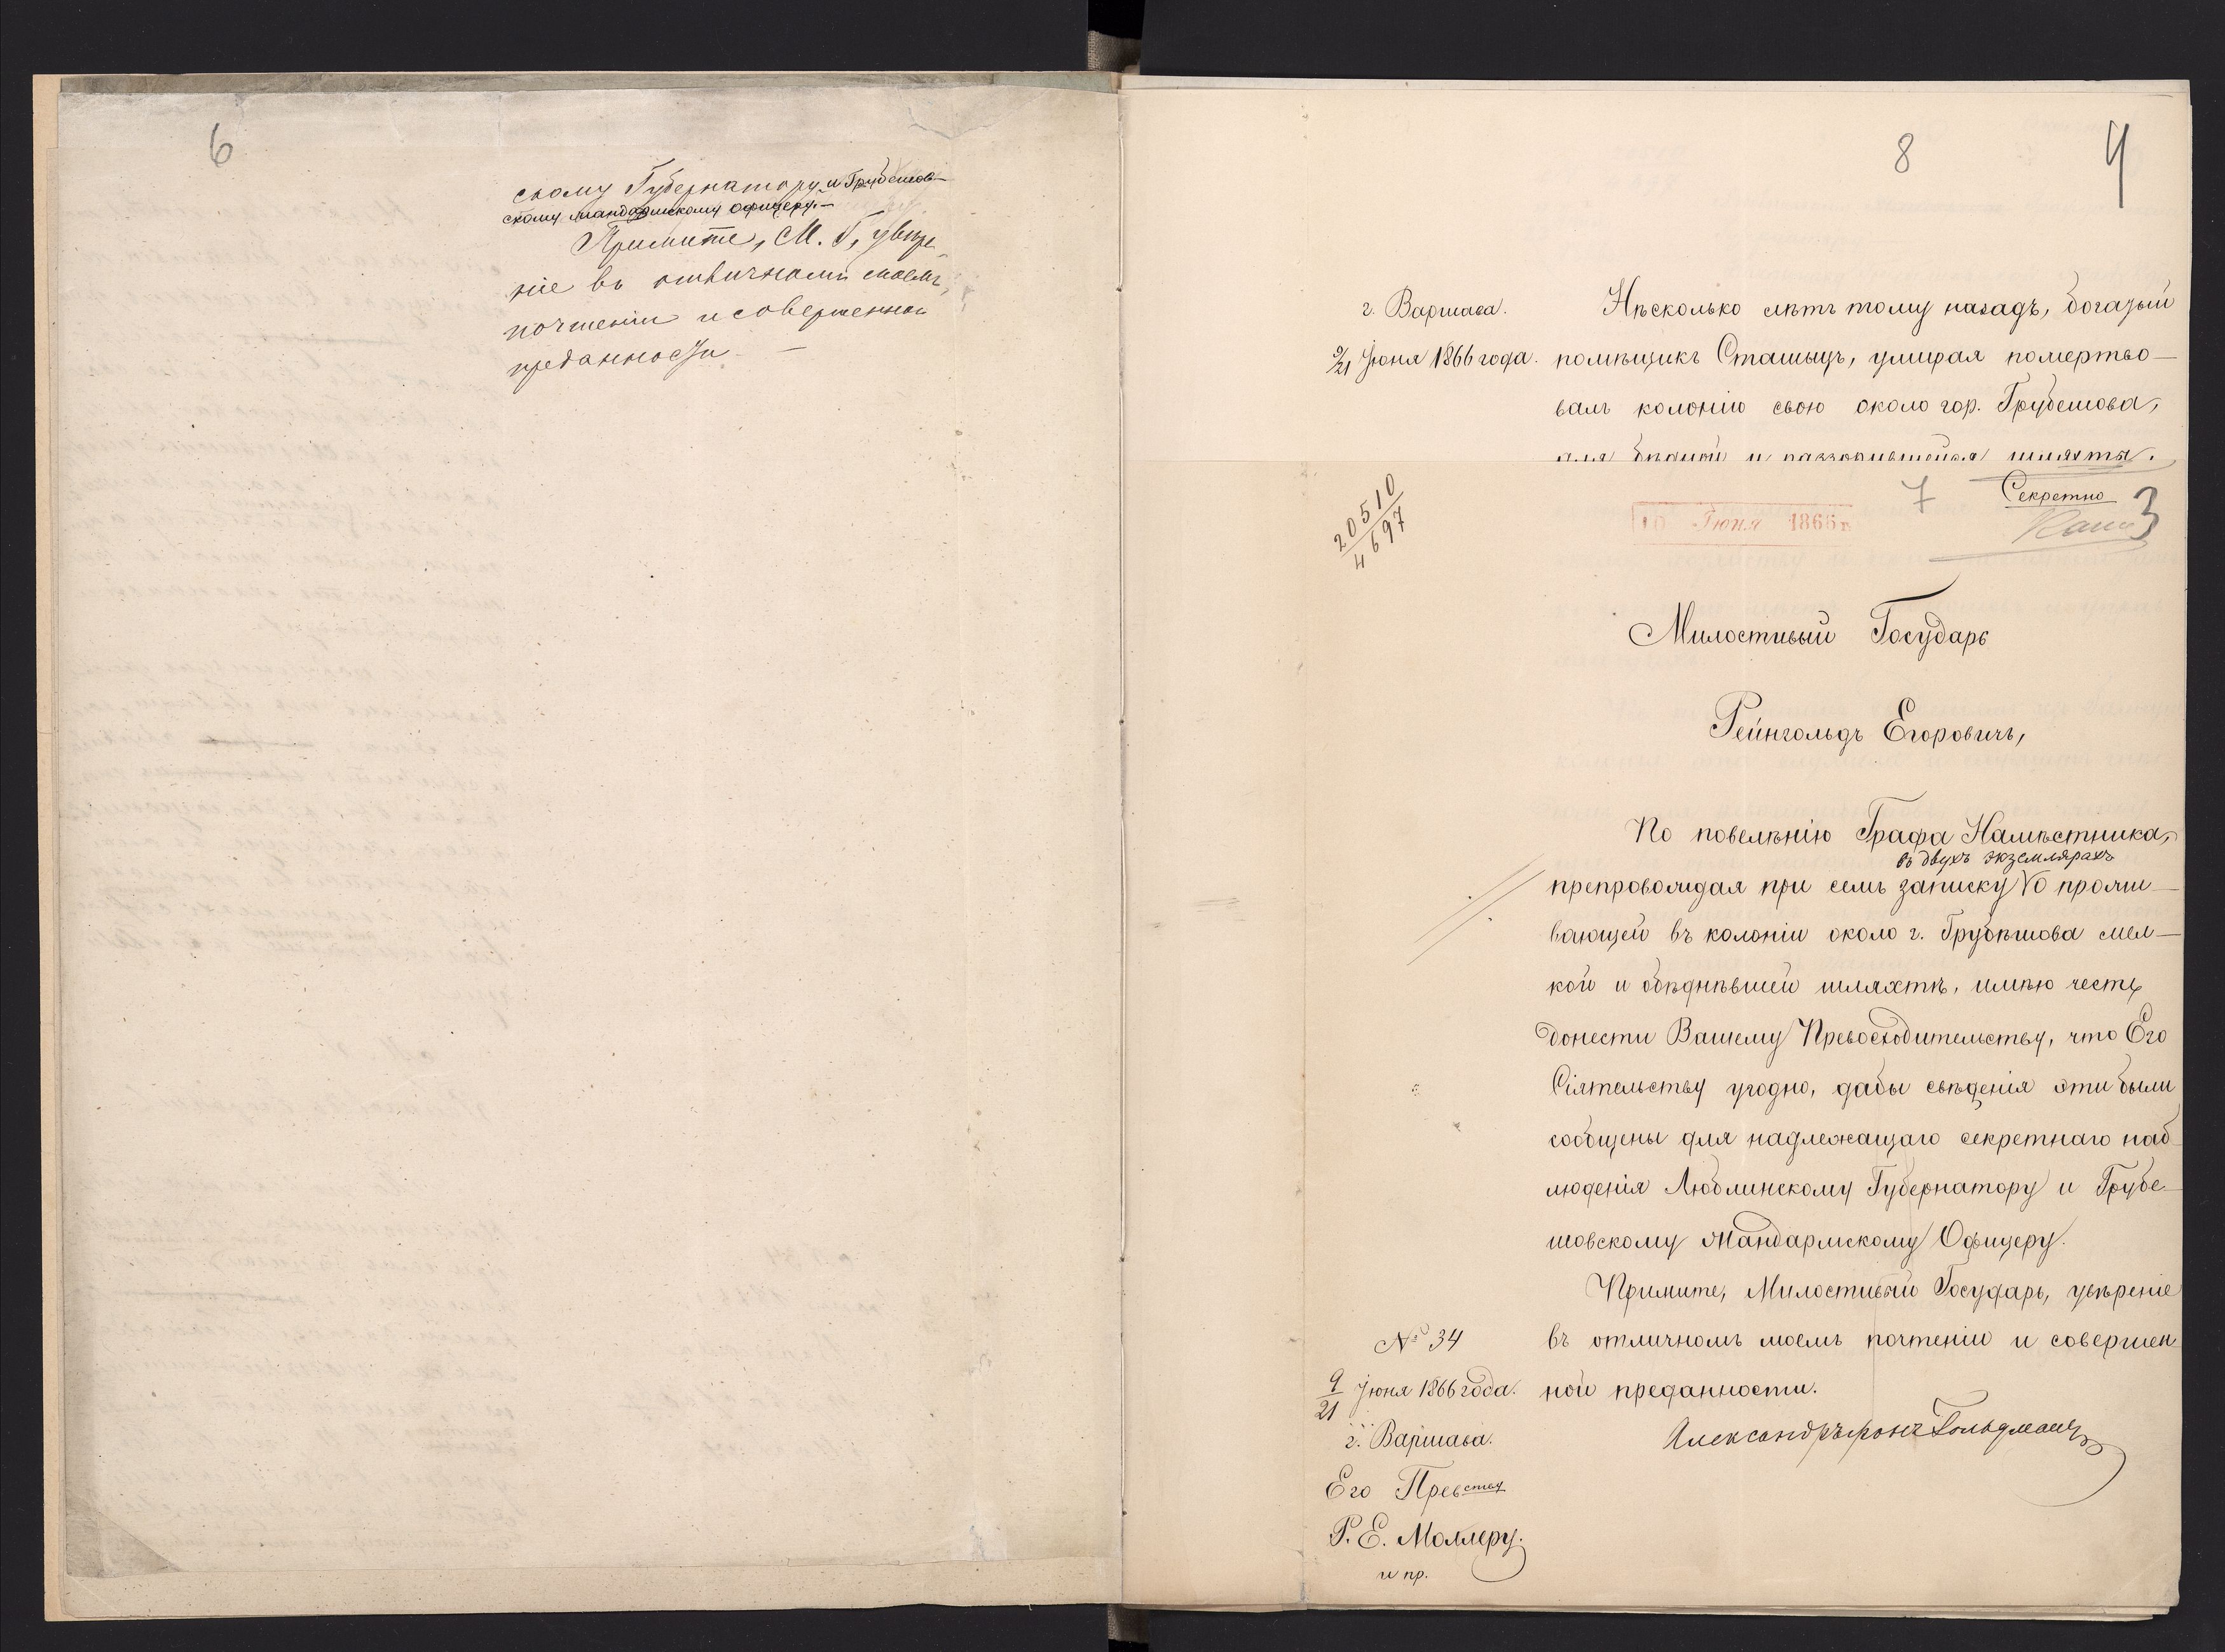 6
скому Губернатору и Грубешов-
скому Жандармскому офицеру.-
Примите, М. Г., увѣре-
ніе въ отличномъ моемъ
почтеніи и совершенной
преданности. —
8
4
г. Варшава.
9/21 Іюня 1866 года.
Нѣсколько лѣтъ тому назадъ, богатый
помѣщикъ Сташыцъ, умирая пожертво-
валъ колонію свою около гор. Грубешова,
для бѣдной и раззорившейся шляхты.
20510
4697
10 Іюня 1866 г.
7
Секретно
3
Милостивый Государь
Рейнгольдъ Егоровичъ,
По повелѣнію Графа Намѣстника,
въ двухъ экземлярахъ
препровождая при семъ записку V о прожи-
вающей въ колоніи около г. Грубѣшова мел-
кой и обѣднѣвшей шляхтѣ, имѣю честь
донести Вашему Превосходительству, что Его
Сіятельству угодно, дабы свѣденія эти были
сообщены для надлежащаго секретнаго наб-
люденія Люблинскому Губернатору и Грубе-
шовскому Жандармскому Офицеру.
Примите, Милостивый Государь, увѣреніе
въ отличномъ моемъ почтеніи и совершен-
ной преданности.
Александръ фонъ Гольдманъ
№ 34
9/21 Іюня 1866 года.
г. Варшава.
Его Превству
Р. Е. Моллеру.
и пр.